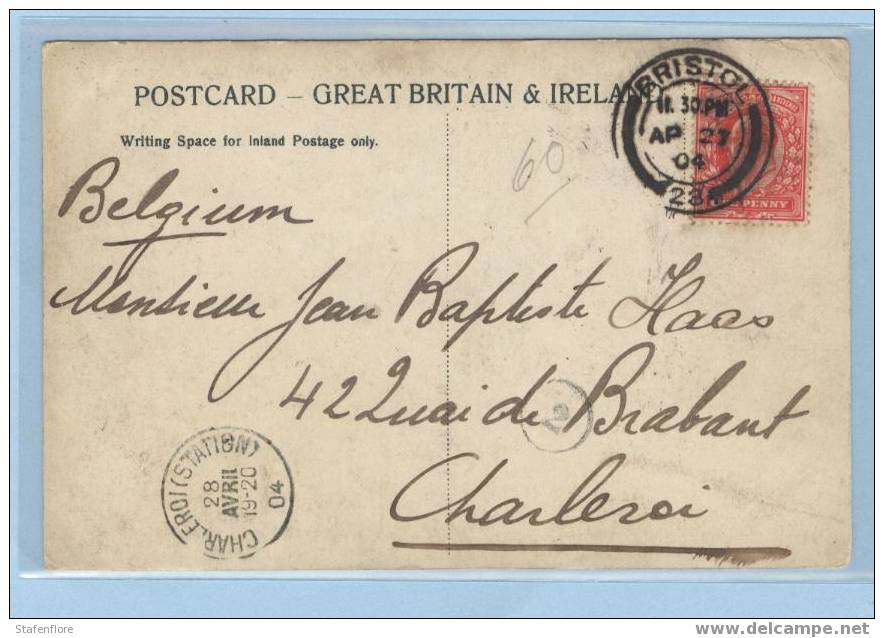 POSTCARD – GREAT BRITAIN & IRELAND
Writing Space for Inland Postage only.
BRISTOL
11.30.PM
AP 27
04
PENNY
60
Belgium
Monsieur Jean Baptiste Haas
42 Quai de Brabant
2
Charleroi
CHARLEROI (STATION)
28
AVRIL
19-20
04
Stafenflore
www.delcampe.net